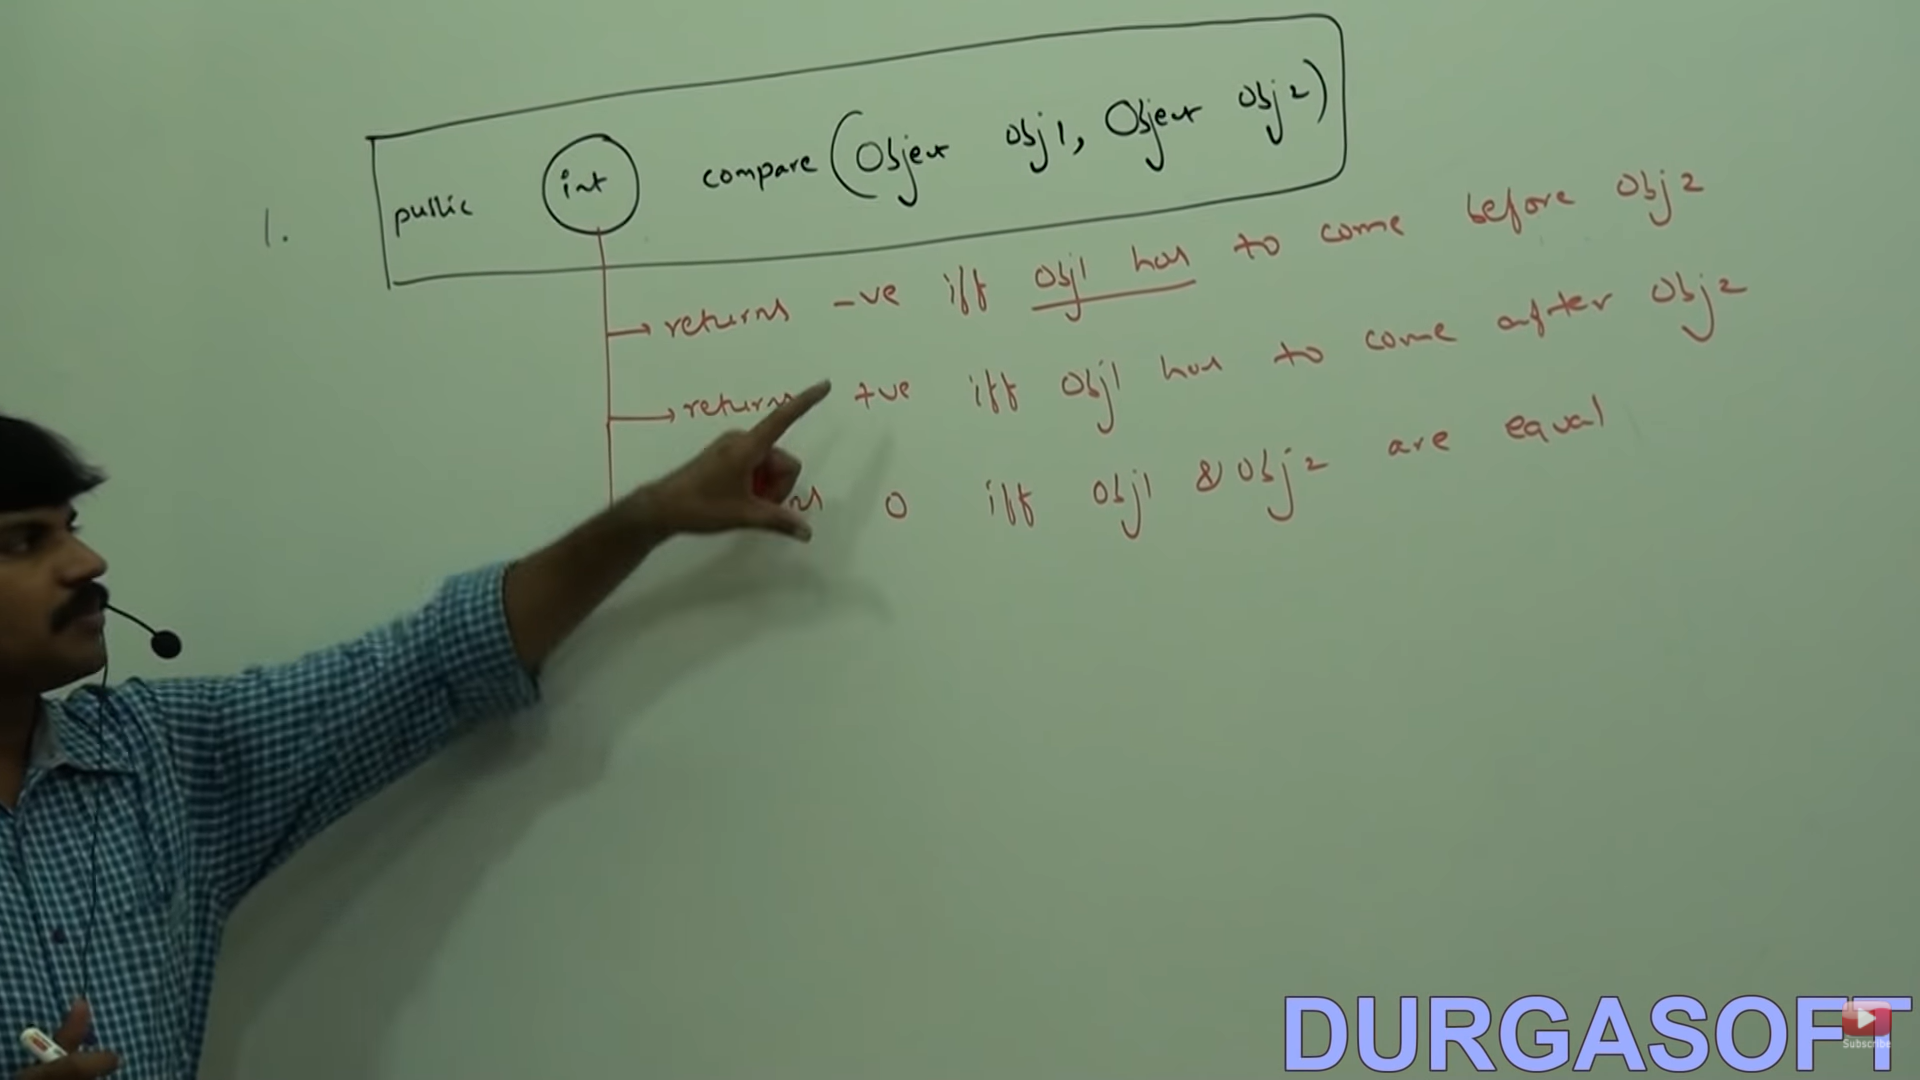 1. public int compare(Object obj1, Object obj2)
→ returns -ve iff obj1 has to come before obj2
→ returns +ve iff obj1 has to come after obj2
0 iff obj1 & obj2 are equal
DURGASOFT
Subscribe